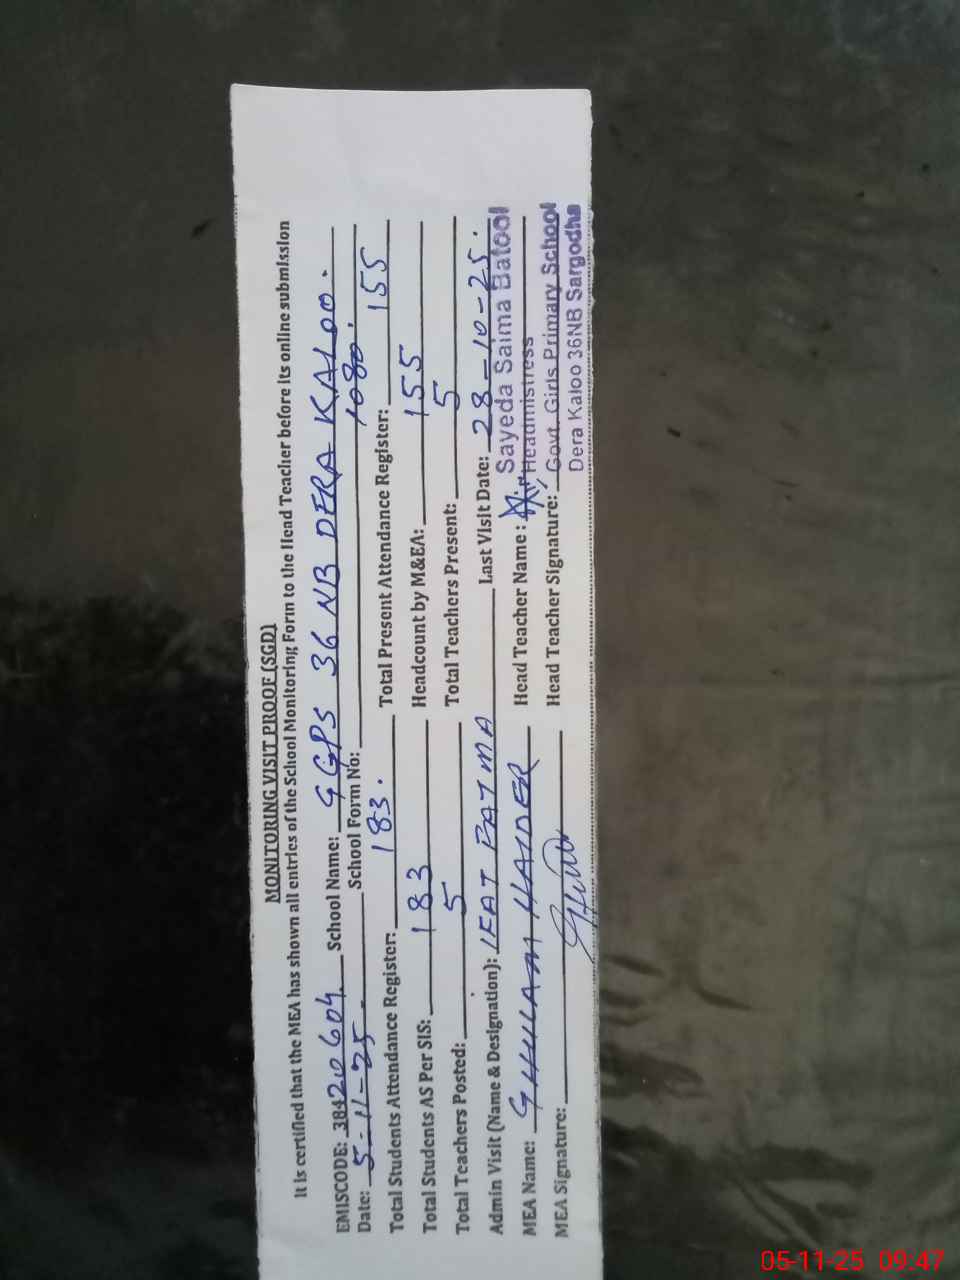 MONITORING VISIT PROOF (SGD)
It is certified that the MEA has shown all entries of the School Monitoring Form to the Head Teacher before its online submission
EMISCODE: 38420604 School Name: GGPS 36 NB DERA KALOO.
Date: 5-11-25 School Form No: 1080.
Total Students Attendance Register: 183. Total Present Attendance Register: 155
Total Students AS Per SIS: 183 Headcount by M&EA: 155
Total Teachers Posted: 5 Total Teachers Present: 5
Admin Visit (Name & Designation): IFAT FATMA Last Visit Date: 28-10-25.
MEA Name: GHULAM HAIDER Head Teacher Name: Sayeda Saima Batool
Headmistress
MEA Signature: Head Teacher Signature: Govt. Girls Primary School
Dera Kaloo 36NB Sargodha
05-11-25 09:47